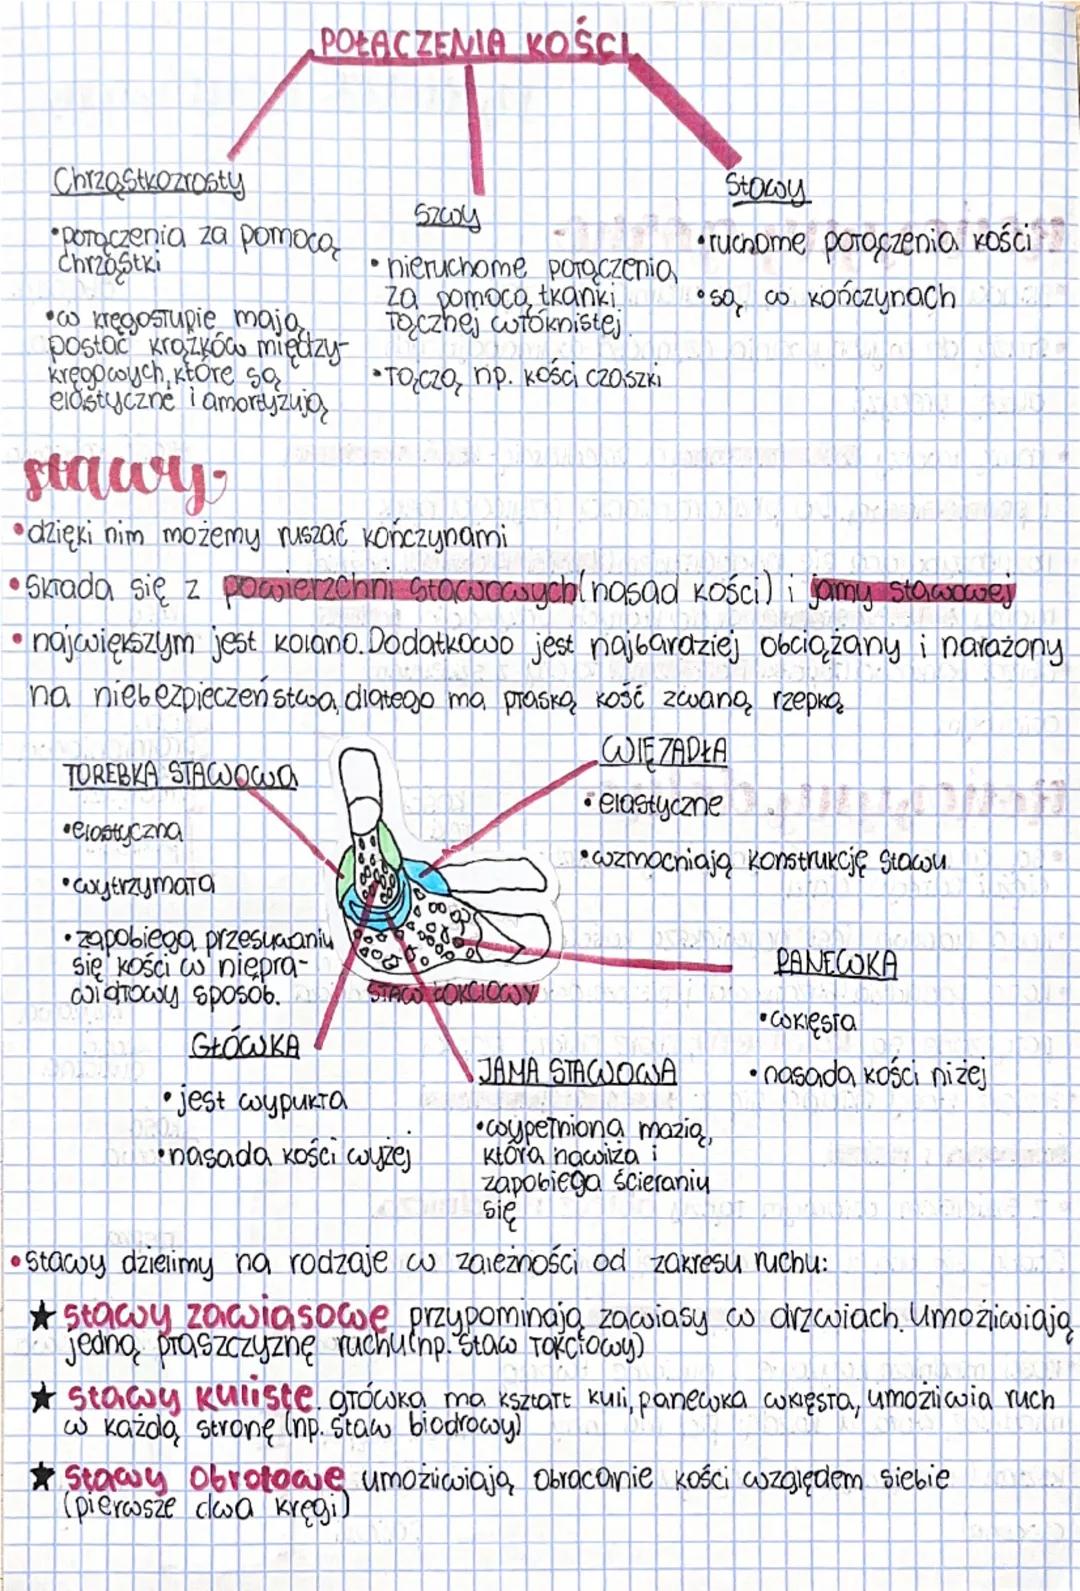 POŁĄCZENIA KOŚCI
Chrząstkozrosty
•połączenia za pomocą
chrząstki
•w kręgosłupie mają
postać krążków między-
kręgowych, które są
elastyczne i amortyzują
Szwy
•nieruchome połączenia
za pomocą tkanki
łącznej włóknistej
•łączą np. kości czaszki
Stawy
•ruchome połączenia kości
•są w kończynach
stawy
•dzięki nim możemy ruszać kończynami
•składa się z powierzchni stawowych (nasad kości) i jamy stawowej
•największym jest kolano. Dodatkowo jest najbardziej obciążany i narażony
na niebezpieczeństwa, dlatego ma płaską kość zwaną rzepką
TOREBKA STAWOWA
•elastyczna
•wytrzymała
•zapobiega przesuwaniu
się kości w niepra-
widłowy sposób.
WIĘZADŁA
•elastyczne
•wzmacniają konstrukcję stawu
STAW ŁOKCIOWY
PANEWKA
•wklęsła
•nasada kości niżej
GŁÓWKA
•jest wypukła
•nasada kości wyżej
JAMA STAWOWA
•wypełniona mazią,
która nawilża i
zapobiega ścieraniu
się
•stawy dzielimy na rodzaje w zależności od zakresu ruchu:
★ stawy zawiasowe przypominają zawiasy w drzwiach. Umożliwiają
jedną płaszczyznę ruchu (np. staw łokciowy)
★ stawy kuliste. główka ma kształt kuli, panewka wklęsła, umożliwia ruch
w każdą stronę (np. staw biodrowy)
★ stawy obrotowe umożliwiają obracanie kości względem siebie
(pierwsze dwa kręgi)